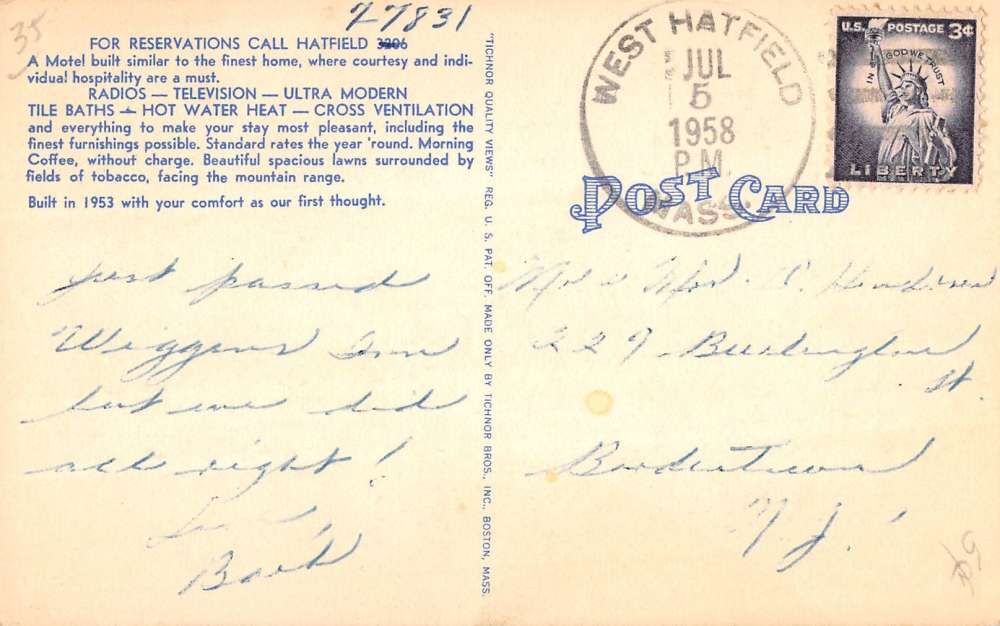 35
77831
FOR RESERVATIONS CALL HATFIELD 3206
A Motel built similar to the finest home, where courtesy and indi-
vidual hospitality are a must.
RADIOS — TELEVISION — ULTRA MODERN
TILE BATHS — HOT WATER HEAT — CROSS VENTILATION
and everything to make your stay most pleasant, including the
finest furnishings possible. Standard rates the year 'round. Morning
Coffee, without charge. Beautiful spacious lawns surrounded by
fields of tobacco, facing the mountain range.
Built in 1953 with your comfort as our first thought.
just passed
Wiggins Inn
but we did
all right!
Barb
"TICHNOR QUALITY VIEWS" REG. U. S. PAT. OFF. MADE ONLY BY TICHNOR BROS., INC., BOSTON, MASS.
WEST HATFIELD
JUL
5
1958
P.M.
MASS.
U.S. POSTAGE 3¢
IN GOD WE TRUST
LIBERTY
POST CARD
Mr & Mrs. C. Henderson
229 Burlington
St.
Bordertown
N. J.